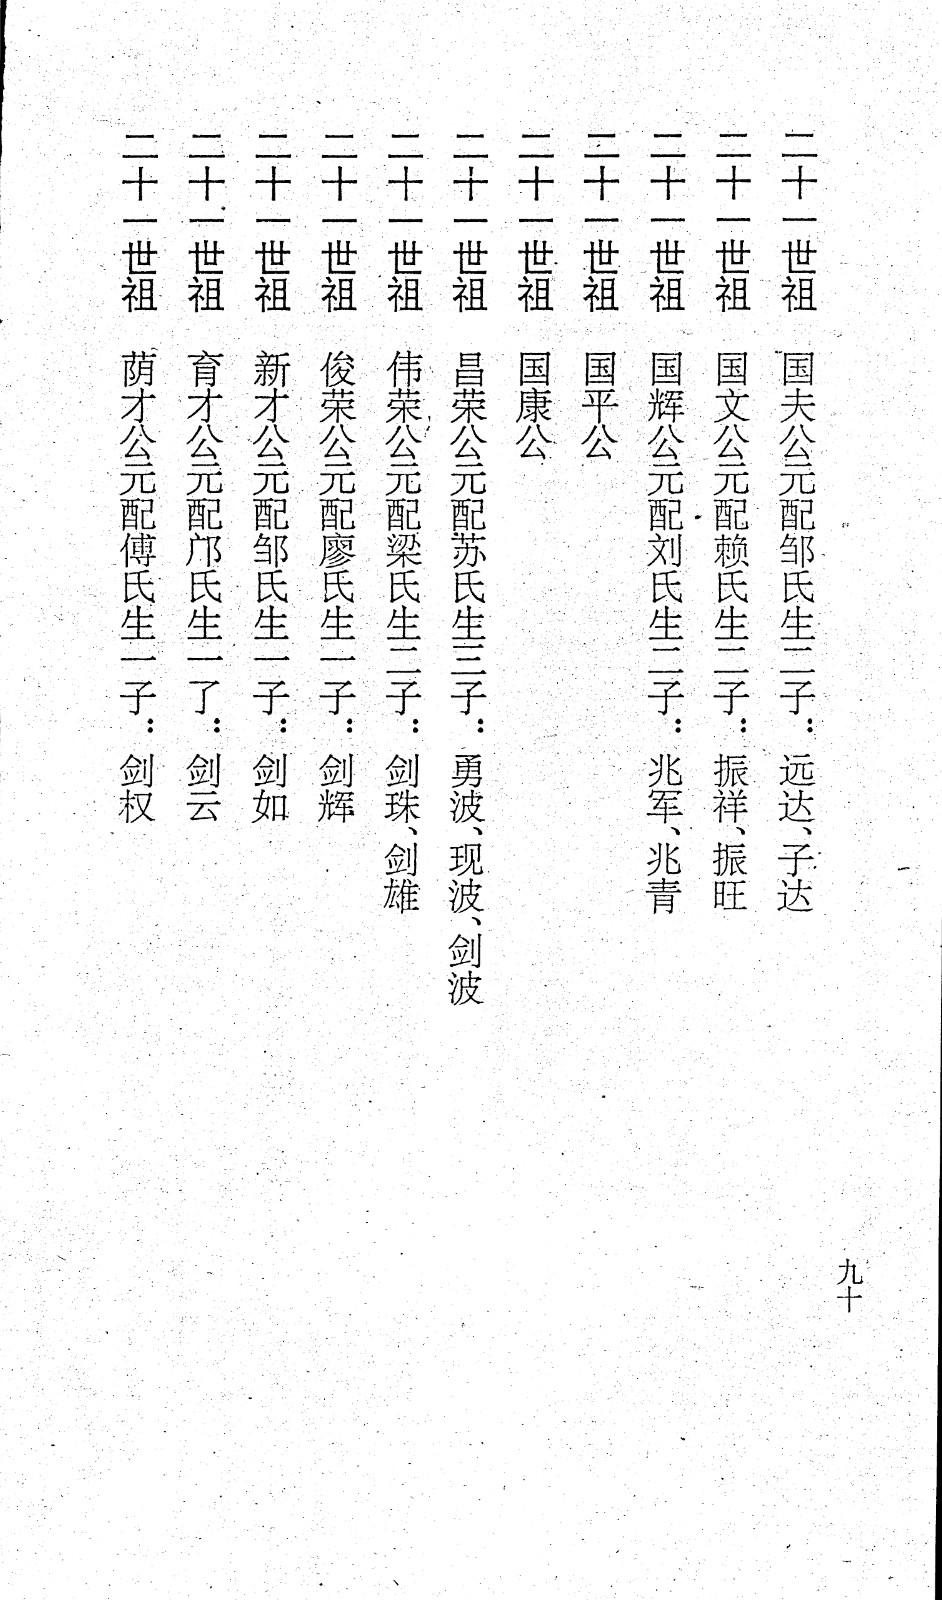 二十一世祖　国夫公元配邹氏生二子：远达、子达
二十一世祖　国文公元配赖氏生二子：振祥、振旺
二十一世祖　国辉公元配刘氏生二子：兆军、兆青
二十一世祖　国平公
二十一世祖　国康公
二十一世祖　昌荣公元配苏氏生三子：勇波、现波、剑波
二十一世祖　伟荣公元配梁氏生二子：剑珠、剑雄
二十一世祖　俊荣公元配廖氏生一子：剑辉
二十一世祖　新才公元配邹氏生一子：剑如
二十一世祖　育才公元配邝氏生一了：剑云
二十一世祖　荫才公元配傅氏生一子：剑权
九十